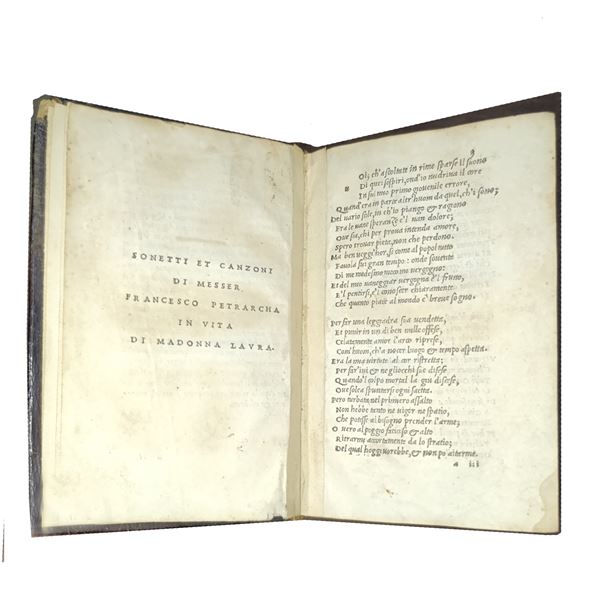 SONETTI ET CANZONI
DI MESSER
FRANCESCO PETRARCHA
IN VITA
DI MADONNA LAVRA.
3
OI, ch'ascoltate in rime sparse il suono
u
Di quei sospiri, ond'io nudriua il core
In sul mio primo giouenile errore,
Quand'era in parte altr'huom da quel, ch'i sono;
Del uario stile, in ch'io piango & ragiono
Fra le uane speranze e'l uan dolore;
Oue sia, chi per proua intenda amore,
Spero trouar pieta, non che perdono.
Ma ben ueggi'hor, si come al popol tutto
Fauola fui gran tempo: onde souente
Di me medesmo meco mi uergogno:
Et del mio uaneggiar uergogna è'l frutto,
E'l pentirsi, e'l conoscer chiaramente
Che quanto piace al mondo è breue sogno.
Per far una leggiadra sua uendetta,
Et punir in un di ben mille offese,
Celatamente amor l'arco riprese,
Com'huom, ch'a nocer luogo & tempo aspetta.
Era la mia uirtute al cor ristretta;
Per far iui & ne gliocchi sue difese
Quando'l colpo mortal la giu discese,
Oue solea spuntarsi ogni saetta.
Pero turbata nel primero assalto
Non hebbe tanto ne uigor ne spatio,
Che potesse al bisogno prender l'arme;
O uero al poggio faticoso & alto
Ritrarmi accortamente da lo stratio;
Del qual hoggi uorrebbe, & non po aitarme.
a iii